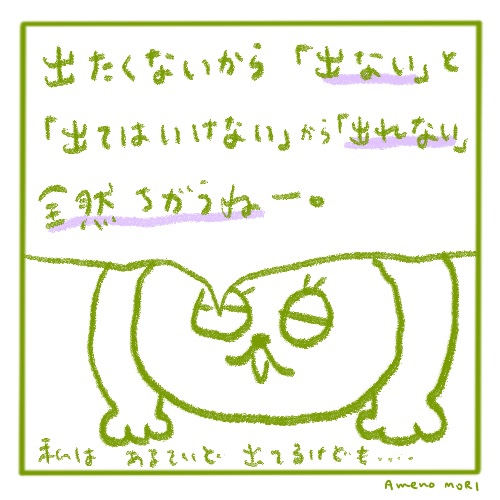 出たくないから「出ない」と
「出てはいけない」から「出れない」
全然ちがうねー。
私は あるていど 出てるけども....
Ameno MORI